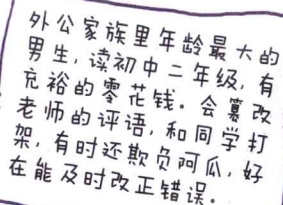 外公家族里年龄最大的
男生，读初中二年级，有
充裕的零花钱。会篡改
老师的评语，和同学打
架，有时还欺负阿瓜，好
在能及时改正错误。